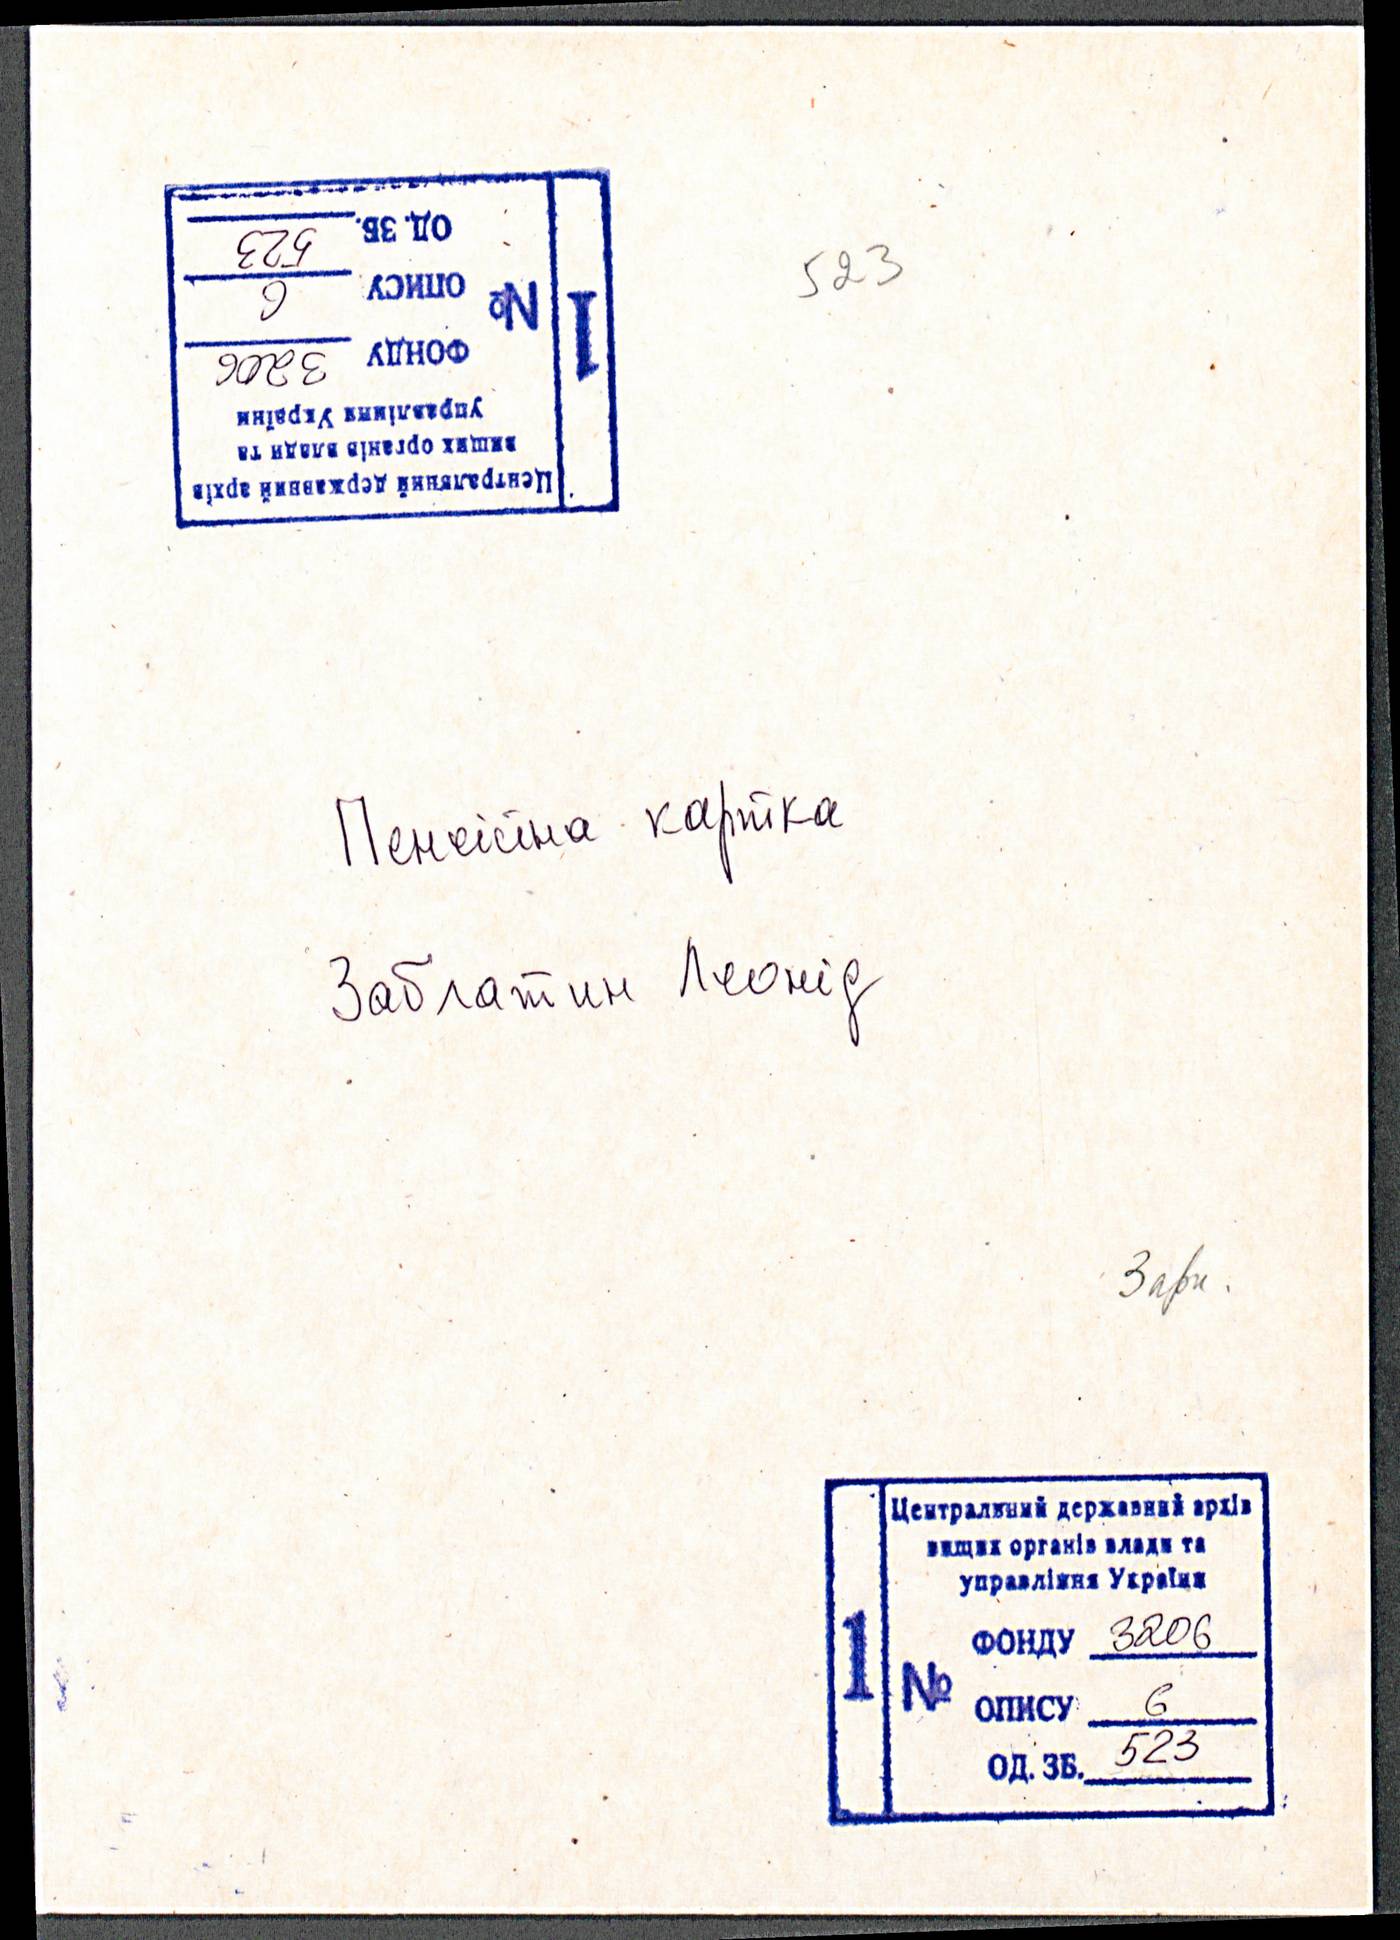 Центральний державний архів
вищих органів влади та
управління України
1
№
ФОНДУ 3206
ОПИСУ 6
ОД. ЗБ. 523
523
Пенсійна картка
Заблатин Леонід
Центральний державний архів
вищих органів влади та
управління України
1
№
ФОНДУ 3206
ОПИСУ 6
ОД. ЗБ. 523